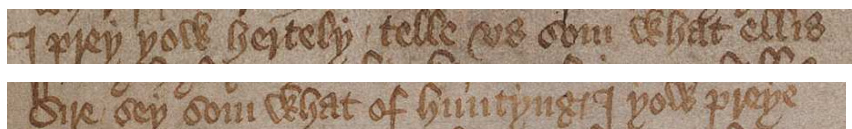 I prey yow hertely / telle vs som what ellis
Sire sey som what of huntyng / I yow preye